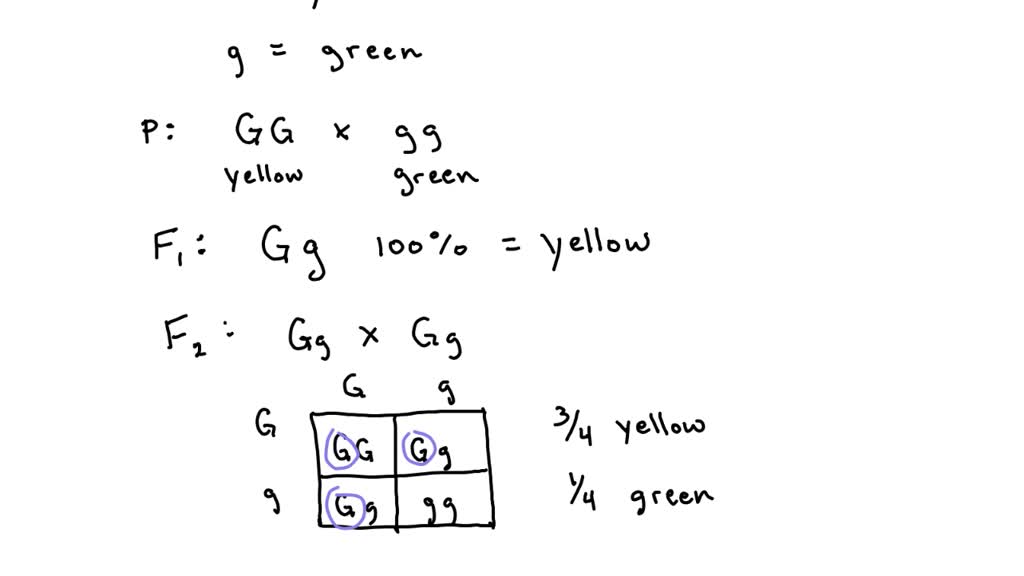 g = green
P: GG x gg
yellow green
F₁: Gg 100% = yellow
F₂: Gg x Gg
G g
G GG Gg 3/4 yellow
g Gg gg 1/4 green